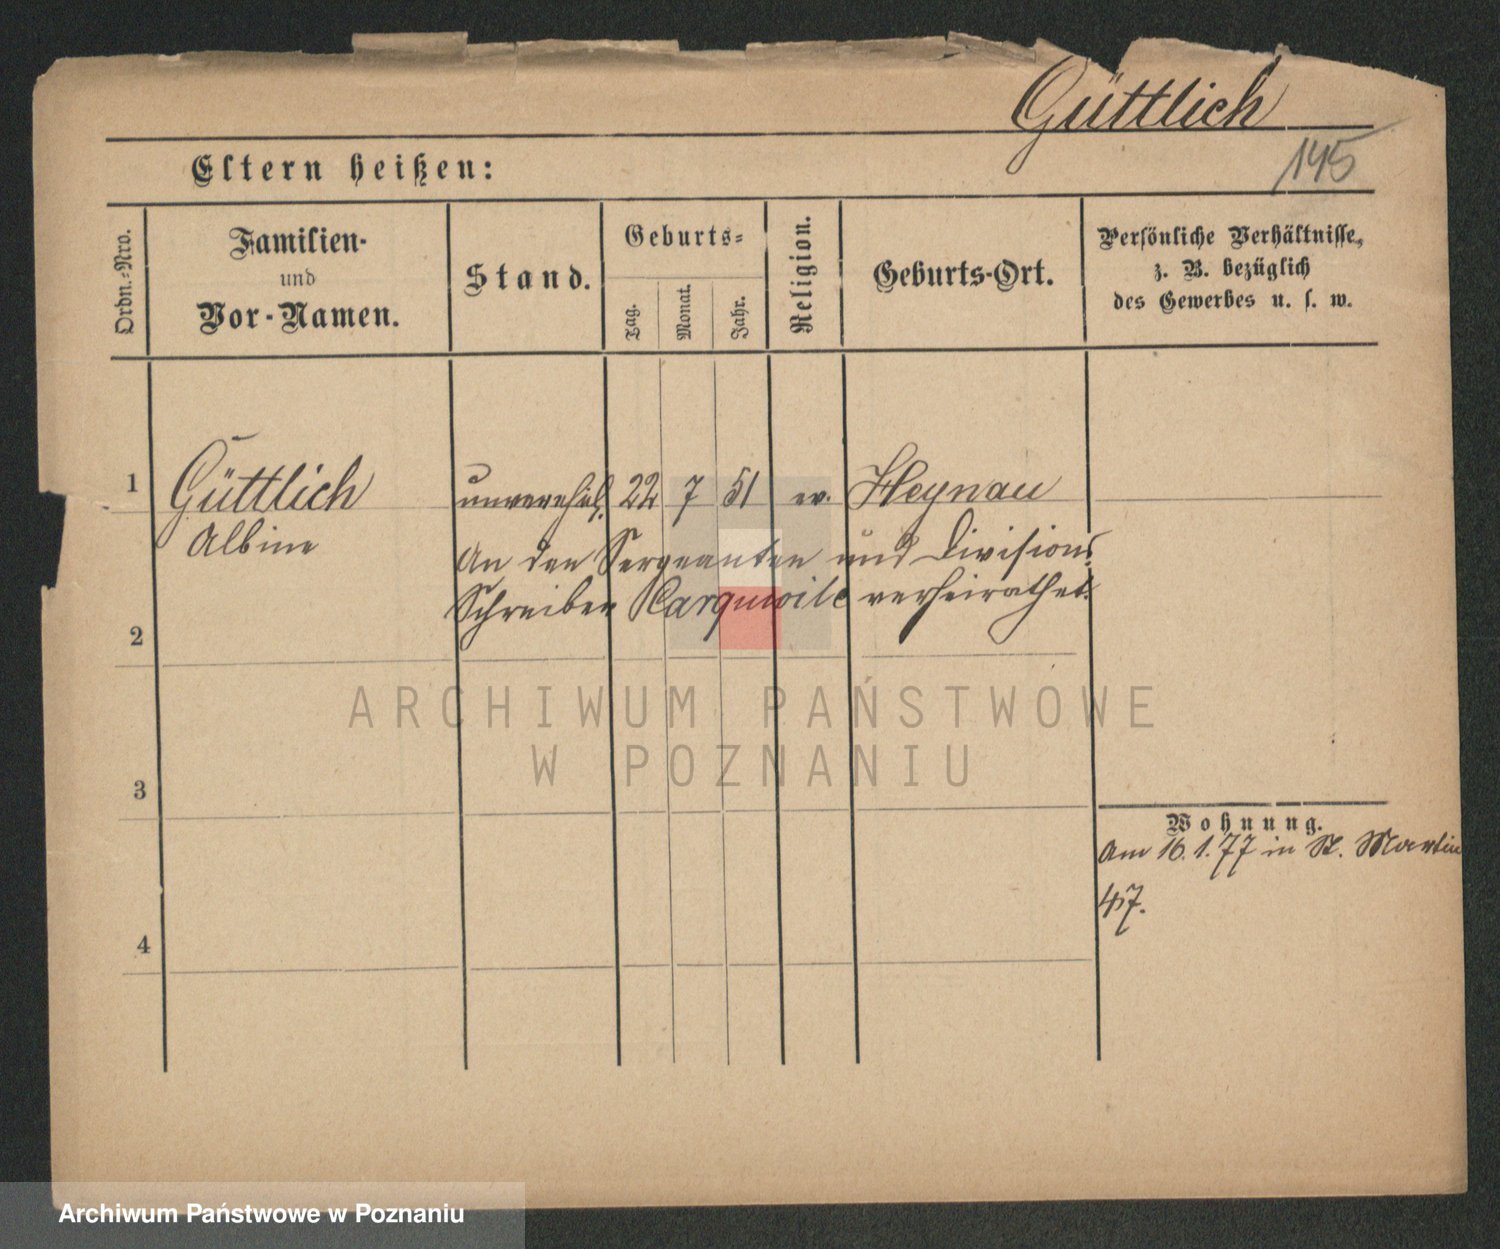 Güttlich
145
Eltern heißen:
Ordn.-Nro.
Familien-
und
Vor-Namen.
Stand.
Geburts-
Tag.
Monat.
Jahr.
Religion.
Geburts-Ort.
Persönliche Verhältnisse,
z. B. bezüglich
des Gewerbes u. s. w.
1 Güttlich unverehel. 22 7 51 ev. Heynau
Albine
An den Sergeanten und Divisions-
Schreiber verheirathet.
2
3
4
Wohnung.
Am 16.1.77 in St. Martin
47.
ARCHIWUM PAŃSTWOWE
W POZNANIU
Archiwum Państwowe w Poznaniu